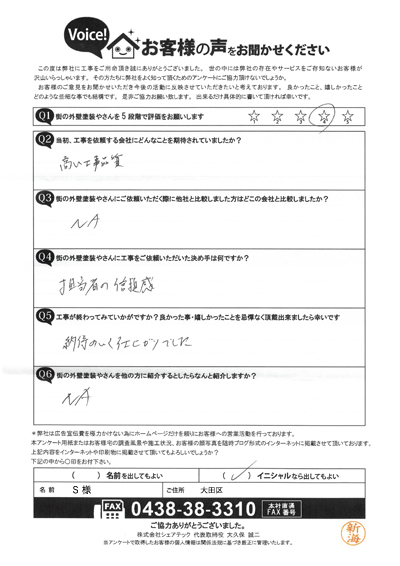 Voice!
お客様の声をお聞かせください
この度は弊社に工事をご用命頂き誠にありがとうございました。世の中には弊社の存在やサービスをご存知ないお客様が
沢山いらっしゃいます。その方たちに弊社をよく知って頂くためのアンケートにご協力頂けないでしょうか。
お客様のご意見をお聞かせいただき今後の活動に反映させていただきたいと考えております。良かったこと、嬉しかったこと
どのような些細な事でも結構です。是非ご協力お願い致します。出来るだけ具体的に書いて頂ければ幸いです。
Q1 街の外壁塗装やさんを5段階で評価をお願いします ☆ ☆ ☆ ☆ ☆
Q2 当初、工事を依頼する会社にどんなことを期待されていましたか?
高い工事品質
Q3 街の外壁塗装やさんにご依頼いただく際に他社と比較しました方はどこの会社と比較しましたか?
NA
Q4 街の外壁塗装やさんに工事をご依頼いただいた決め手は何ですか?
担当者の信頼感
Q5 工事が終わってみていかがですか?良かった事・嬉しかったことを忌憚なく頂戴出来ましたら幸いです
納得のいく仕上がりでした
Q6 街の外壁塗装やさんを他の方に紹介するとしたらなんと紹介しますか?
NA
*弊社は広告宣伝費を極力かけない為にホームページだけを頼りにお客様への営業活動を行っております。
本アンケート用紙またはお客様宅の調査風景や施工状況、お客様の顔写真を随時ブログ形式のインターネットに掲載させて頂いております。
上記内容をインターネットや印刷物に掲載させて頂いてもよろしいでしょうか?
下記の中から〇印をお付け下さい。
( ) 名前を出してもよい ( ✓ ) イニシャルなら出してもよい
名前 S 様 ご住所 大田区
FAX 0438-38-3310 本社直通 FAX番号
ご協力ありがとうございました。
株式会社シェアテック 代表取締役 大久保 誠二
※アンケートで取得したお客様の個人情報は関係法規に基づき厳正に管理いたします。
新海